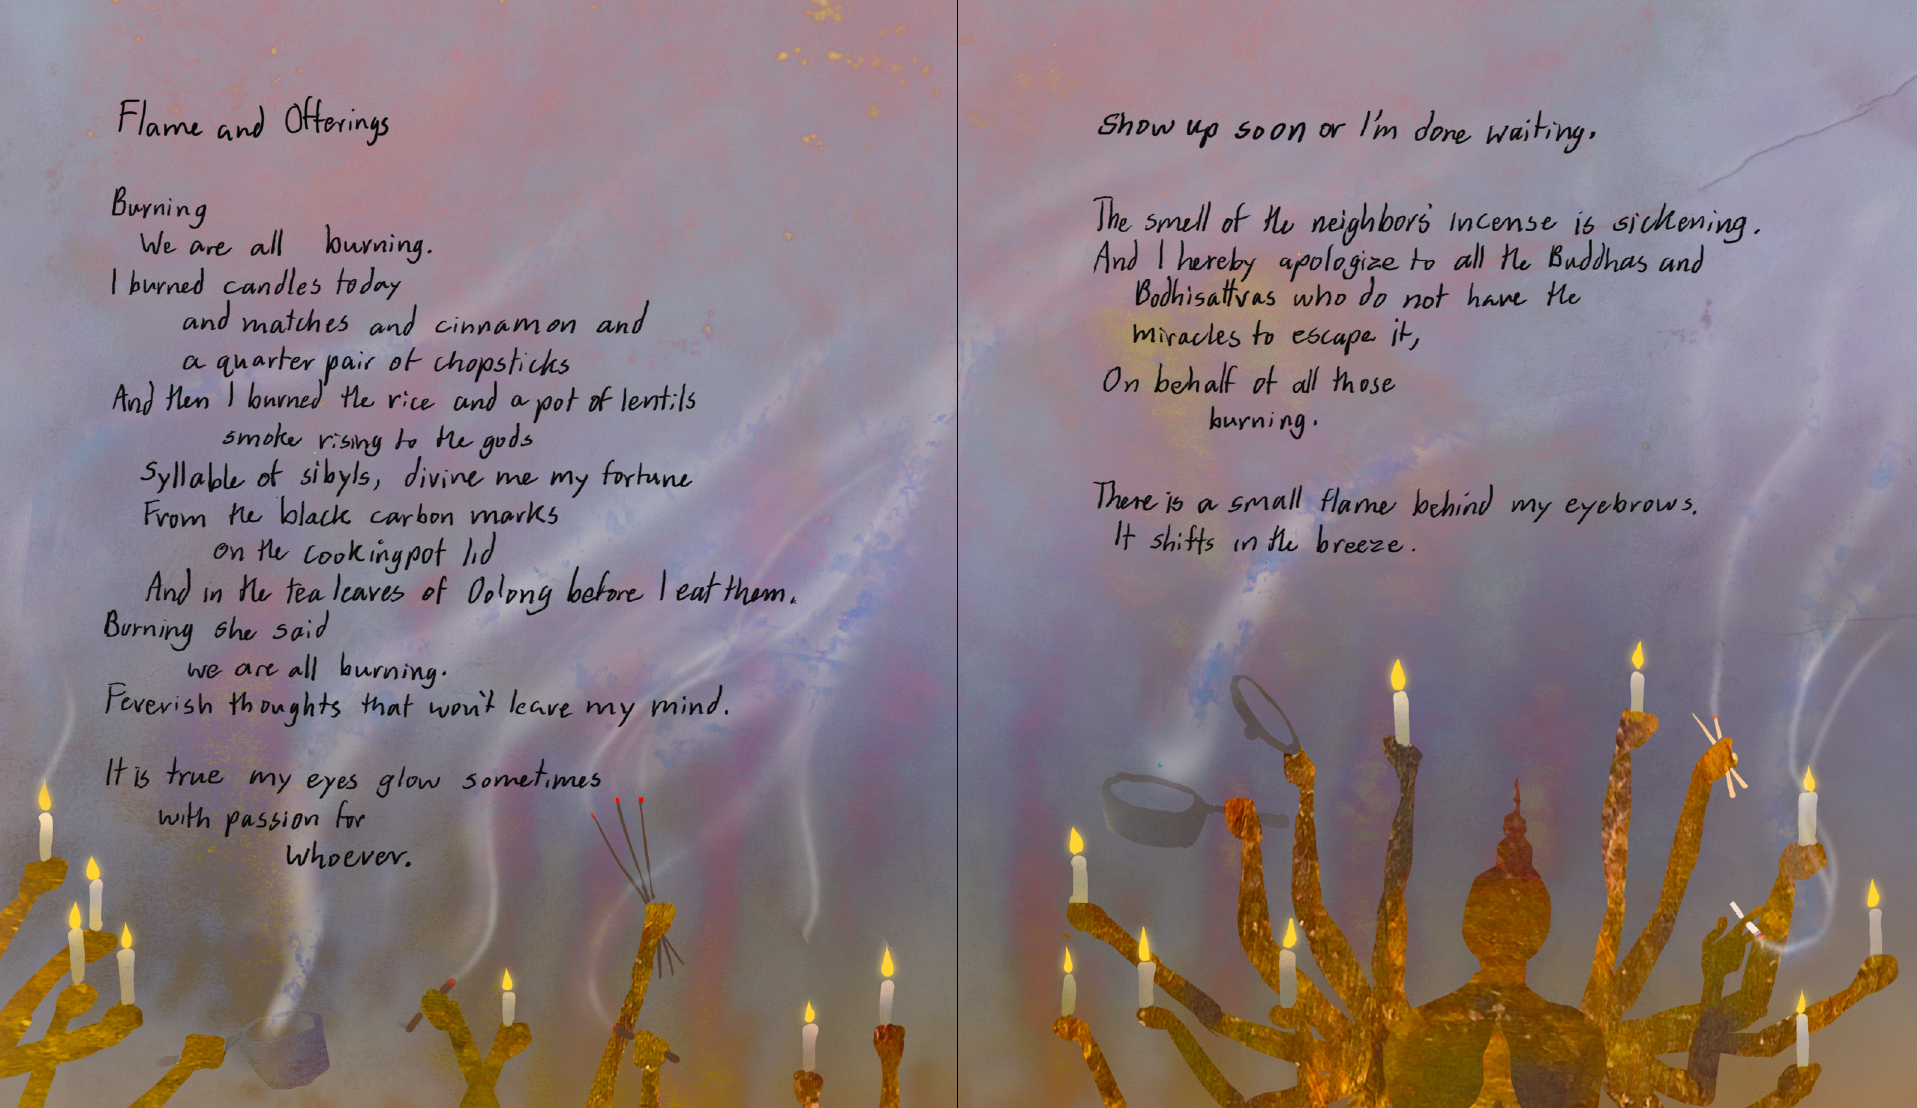 Flame and Offerings
Burning
We are all burning.
I burned candles today
and matches and cinnamon and
a quarter pair of chopsticks
And then I burned the rice and a pot of lentils
smoke rising to the gods
Syllable of sibyls, divine me my fortune
From the black carbon marks
on the cookingpot lid
And in the tea leaves of Oolong before I eat them.
Burning she said
we are all burning.
Feverish thoughts that won't leave my mind.
It is true my eyes glow sometimes
with passion for
Whoever.
Show up soon or I'm done waiting.
The smell of the neighbors' incense is sickening.
And I hereby apologize to all the Buddhas and
Bodhisattvas who do not have the
miracles to escape it,
On behalf of all those
burning.
There is a small flame behind my eyebrows.
It shifts in the breeze.